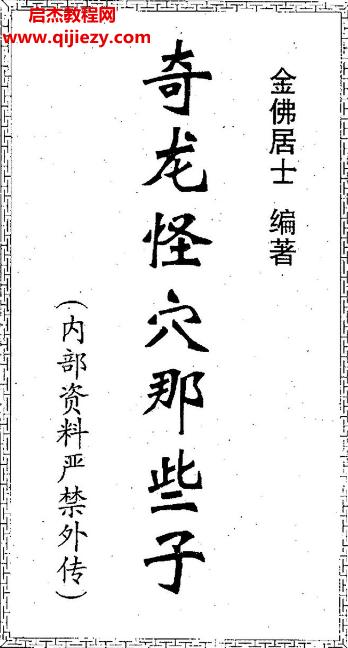 启杰教程网
www.qijiezy.com
金佛居士 编著
奇龙怪穴那些子
(内部资料严禁外传)